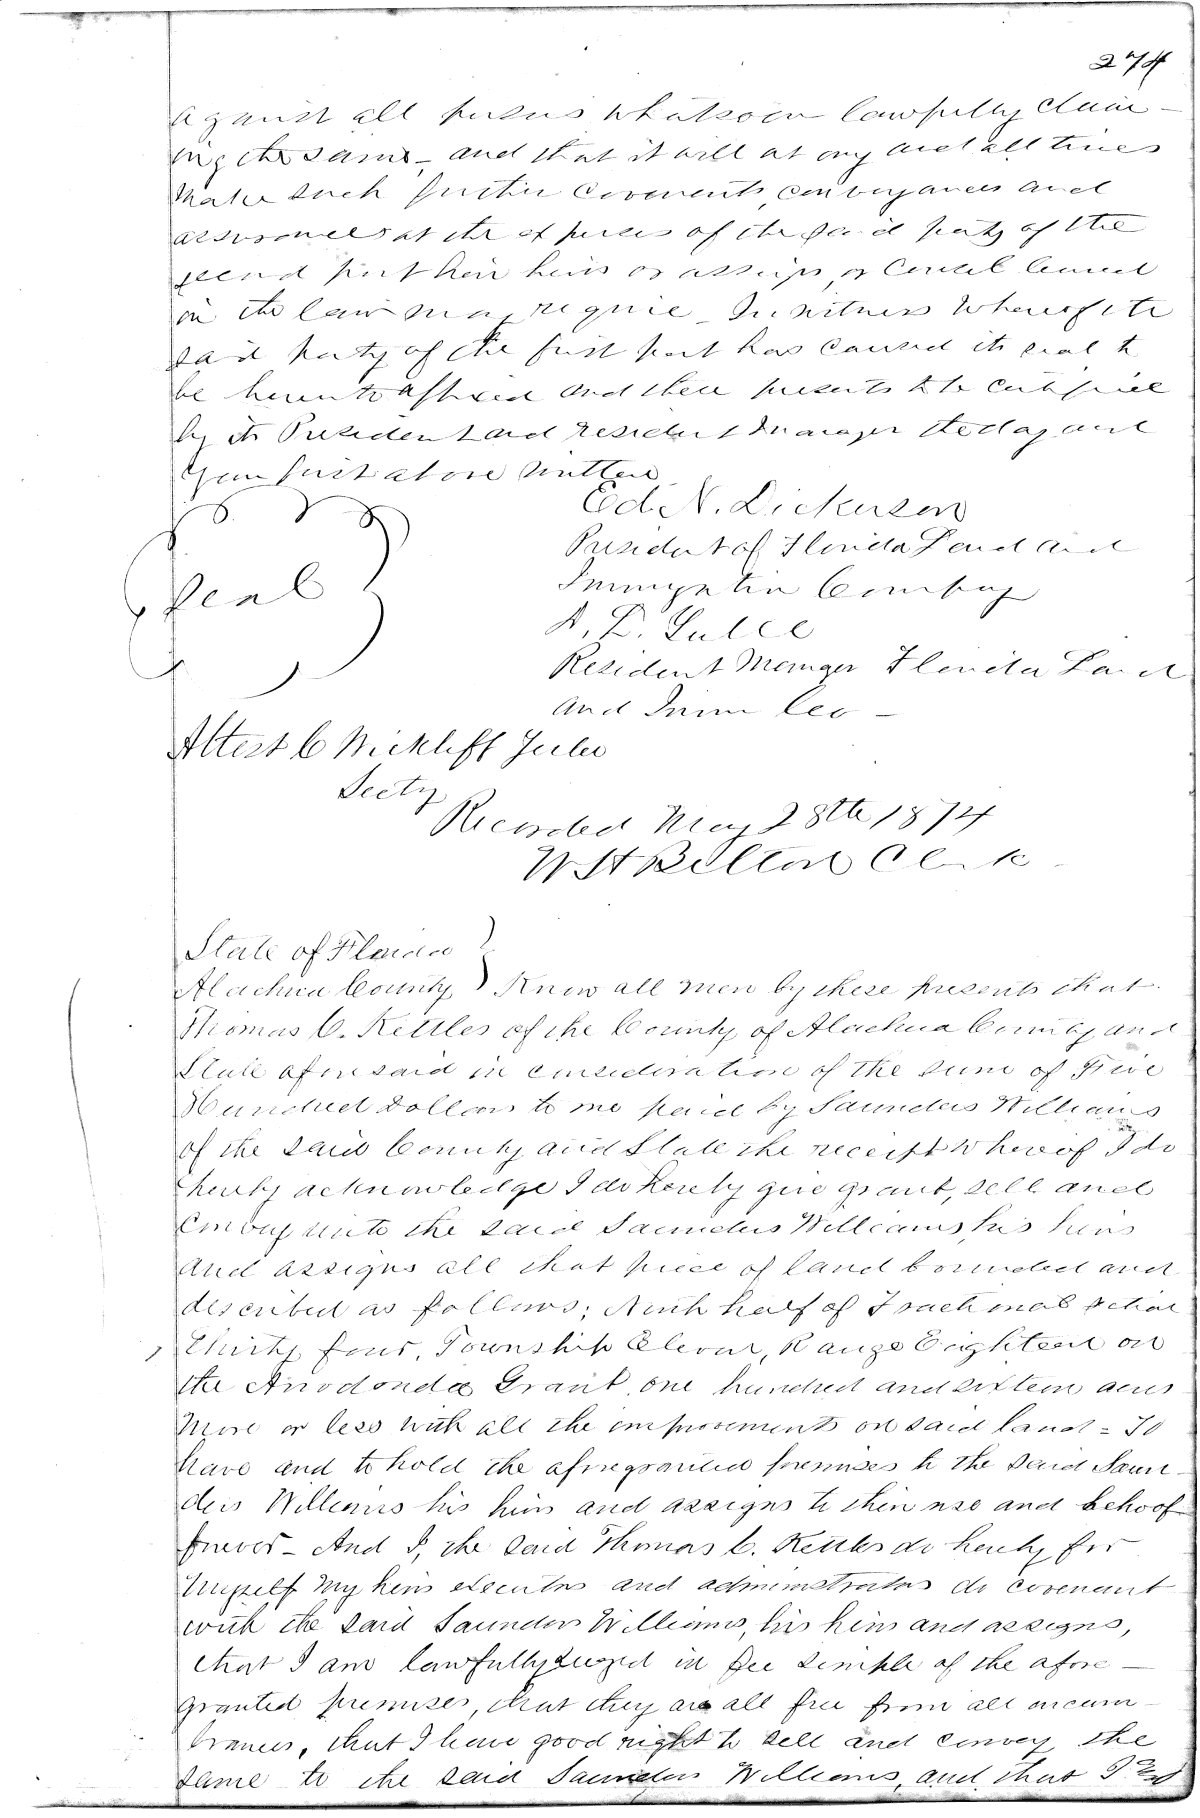 274
against all persons whatsoever lawfully claim-
ing the same, and that it will at any and all times
make such further covenants, conveyances and
assurances at the expenses of the said party of the
second part his heirs or assigns, or Counsel learned
in the law may require_ In witness Whereof the
said party of the first part has caused its seal to
be hereunto affixed and these presents to be
by its President and resident manager the day and
year first above written
Ed. N. Dickerson
President of Florida Land and
Immigratin Company
Seal
Resident Manager Florida Land
and Imm Co -
Attest C Wickliff Yulee
Secty
Recorded May 28th 1874
W H Belton Clerk
State of Florida
Alachua County } Know all men by these presents that
Thomas C. Kettles of the County of Alachua County and
State aforesaid in consideration of the sum of Five
Hundred Dollars to me paid by Saunders Williams
of the said County and State the receipt whereof I do
hereby acknowledge I do hereby give grant, sell and
Convey unto the said Saunders Williams, his heirs
and assigns all that piece of land bounded and
described as follows; North half of Fractional section
thirty four, Township Eleven, Range Eighteen on
the Arredondo Grant one hundred and sixteen acres
more or less with all the improvements on said land = To
have and to hold the aforegranted premises to the said Saun-
ders Williams his heirs and assigns to their use and behoof
forever - And I, the said Thomas C. Kettles do hereby for
myself my heirs executors and administrators do covenant
with the said Saunders Williams, his heirs and assigns,
that I am lawfully seized in fee simple of the afore-
granted premises, that they are all free from all incum-
brances, that I have good right to sell and convey the
same to the said Saunders Williams, and that I